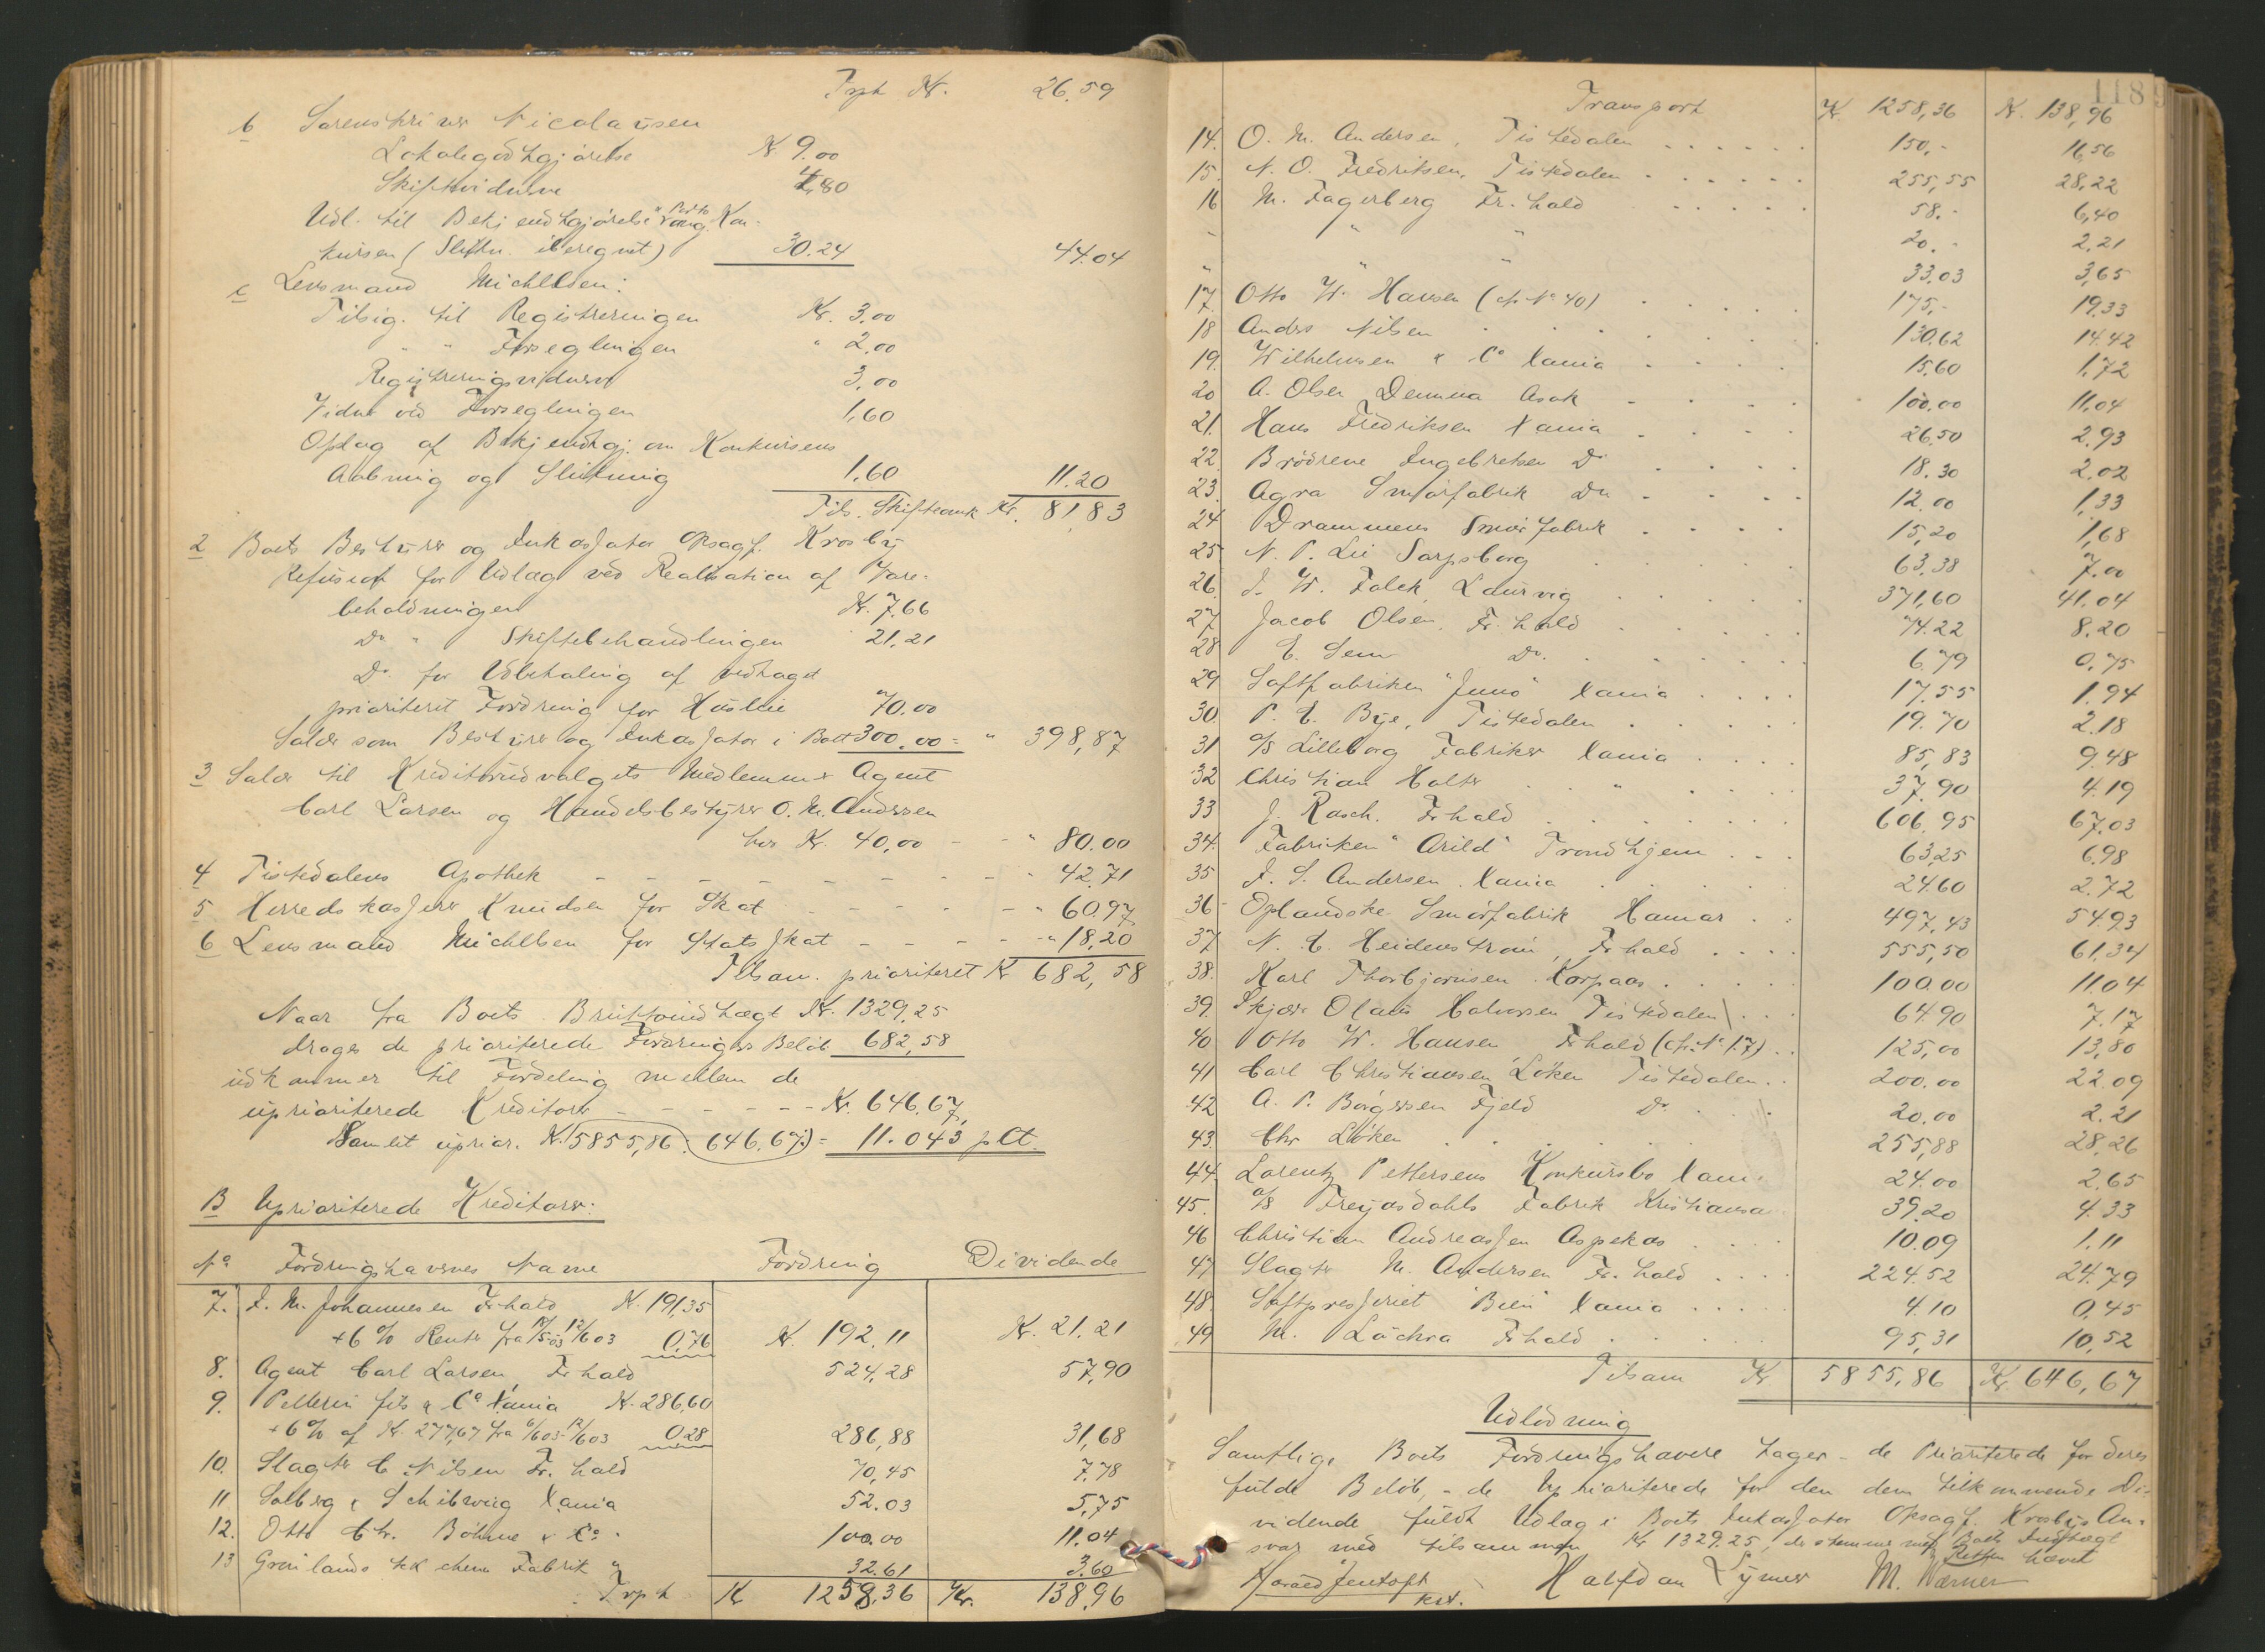 Trpt Kr. 26.59
b Sorenskriver Nicolaisen
Lokalegodtgjörelse Kr 9.00
Skiftevidnerne 4,80
Udl. til Bekjendtgjörelse " Porto ang. Kon-
kursen (Slutn. iberegnet) 30.24 44.04
c Lensmand Michelsen:
Tilsig. til Registreringen Kr. 3.00
" " Forseglingen " 2.00
Registreringsvidnerne 3,00
Vidne ved Forseglingen 1,60
Opslag af Bekjendtgj. om Konkursens
Aabning og Slutning 1,60 11.20
Tils. Skifteomk Kr. 81,83
2 Boets Bestyrer og Inkassator Opsagf. Krosby
Refusion for Udlæg ved Realisation af Vare-
beholdningen Kr. 7,66
Do " Skiftebehandlingen 21.21
Do for Udbetaling af vedtaget
prioriteret Fordring for Husleie 70.00
Salær som Bestyrer og Inkassator i Boet 300.00 = " 398,87
3 Salær til Kreditorudvalgets Medlemmer Agent
Carl Larsen og Handelsbestyrer O. M. Andersen
hver Kr. 40,00 - - " 80.00
4 Tistedalens Apothek - - - - - - - - - " 42.71
5 Herredskasserer Knudsen for Skat - - - - - " 60.97
6 Lensmand Michelsen for Statsskat - - - - - " 18,20
Tilsam. prioriteret Kr 682,58
Naar fra Boets Bruttoindtægt Kr. 1329.25
drages de prioriterede Fordringers Belöb 682,58
udkommer til Fordeling mellem de
uprioriterede Kreditorer - - - - - - Kr. 646.67,
Samlet uprior. Kr. (5855,86 : 646.67) = 11.043 pCt.
B Uprioriterede Kreditorer:
No Fordringshavernes Navne Fordring Dividende
7. J. M. Johannesen Frhald Kr. 191,35
+6% Renter fra 19/5 03 12/6 03 0,76 Kr. 192.11 Kr. 21.21
8. Agent Carl Larsen, Frhald 524,28 57,90
9. Pellerin fils & Co Xania Kr. 286,60
+6% af Kr. 277,67 fra 6/6 03 - 12/6 03 0.28 286,88 31,68
10. Slagter C. Nilsen Fr.hald 70,45 7.78
11 Solberg & Schibsvig Xania 52.03 5,75
12. Otto Chr. Böhme & Co " 100.00 11.04
13 Grönlands tekn chem Fabrik " 32.61 3.60
Trpt Kr 1258.36 Kr. 138.96
118
Transport Kr 1258,36 Kr. 138,96
14. O. M. Andersen, Tistedalen . . . . . . 150,- 16,56
15. N. O. Fredriksen, Tistedalen . . . . . . 255,55 28,22
16 M. Fagerberg Fr.hald . . . . . 58.- 6,40
" " " 20.- 2.21
" " " 33.03 3,65
17. Otto W. Hansen (cfr. No 40) . . . . 175,- 19.33
18 Anders Nilsen . . . . . 130.62 14.42
19. Wilhelmsen & Co Xania . . . . 15.60 1.72
20 A. Olsen Demma Asak . . . . 100.00 11.04
21. Hans Fredriksen Xania . . . . 26.50 2.93
22. Brödrene Ingebretsen Do . . . . 18.30 2.02
23. Agra Smörfabrik Do . . . . 12.00 1,33
24. Drammens Smörfabrik . . . . 15,20 1,68
25. N. P. Lie Sarpsborg . . . . . 63.38 7.00
26. J. W. Falck, Laurvig . . . . . 371,60 41.04
27 Jacob Olsen, Fr.hald . . . . . 74.22 8.20
28 E. Sem Do. . . . . . 6.79 0.75
29 Saftfabriken "Juno" Xania . . . . 17.55 1.94
30. P. E. Bye, Tistedalen . . . . . 19.70 2.18
31 A/S Lilleborg Fabriker Xania . . . . 85,83 9.48
32 Christian Holter . . " . . . . 37.90 4.19
33 J. Rasch. Frhald . . . . . . . 606.95 67.03
34. Fabriken "Arild" Trondhjem . . . 63,25 6.98
35 J. S. Andersen. Xania . . . . . 24.60 2.72
36 Oplandske Smörfabrik Hamar . . 497,43 54.93
37 N. C. Heidenström, Fr.hald . . . . 555,50 61.34
38. Karl Thorbjörnsen Korpaas . . . . . 100.00 11.04
39. Skjær Olaus Halvorsen Tistedalen . . . 64.90 7.17
40 Otto W. Hansen Frhald (cfr. No 17) . . 125,00 13,80
41 Carl Christiansen Löken Tistedalen . . 200.00 22.09
42 A. P. Börgersen Fjeld Do . . . 20.00 2.21
43. Chr Löken . . . . . . 255,88 28.26
44 Lorentz Pettersens Konkursbo Xania 24.00 2.65
45. A/S Freyasdahls Fabrik Kristiansa 39.20 4.33
46 Christian Andreassen Aspekas . . . . 10.09 1.11
47 Slagter M. Andersen Fr.hald . . . . 224.52 24.79
48 Saftpresseriet "Bien" Xania . . . . . 4.10 0.45
49 M. Lächra Frhald . . . . 95,31 10,52
Tilsam Kr 5855,86 Kr. 646,67
Udlodning
Samtlige Boets Fordringshavere tager - de Prioriterede for deres
fulde Belöb, - de Uprioriterede for den dem tilkommende Di-
vidende fuldt Udlæg i Boets Inkassator Opsagf. Krosbys An-
svar med tilsammen Kr 1329.25, der stemmer med Boets Indtægt
Retten hævet
Harald Jentoft Halfdan Symer M. Værner
kst.